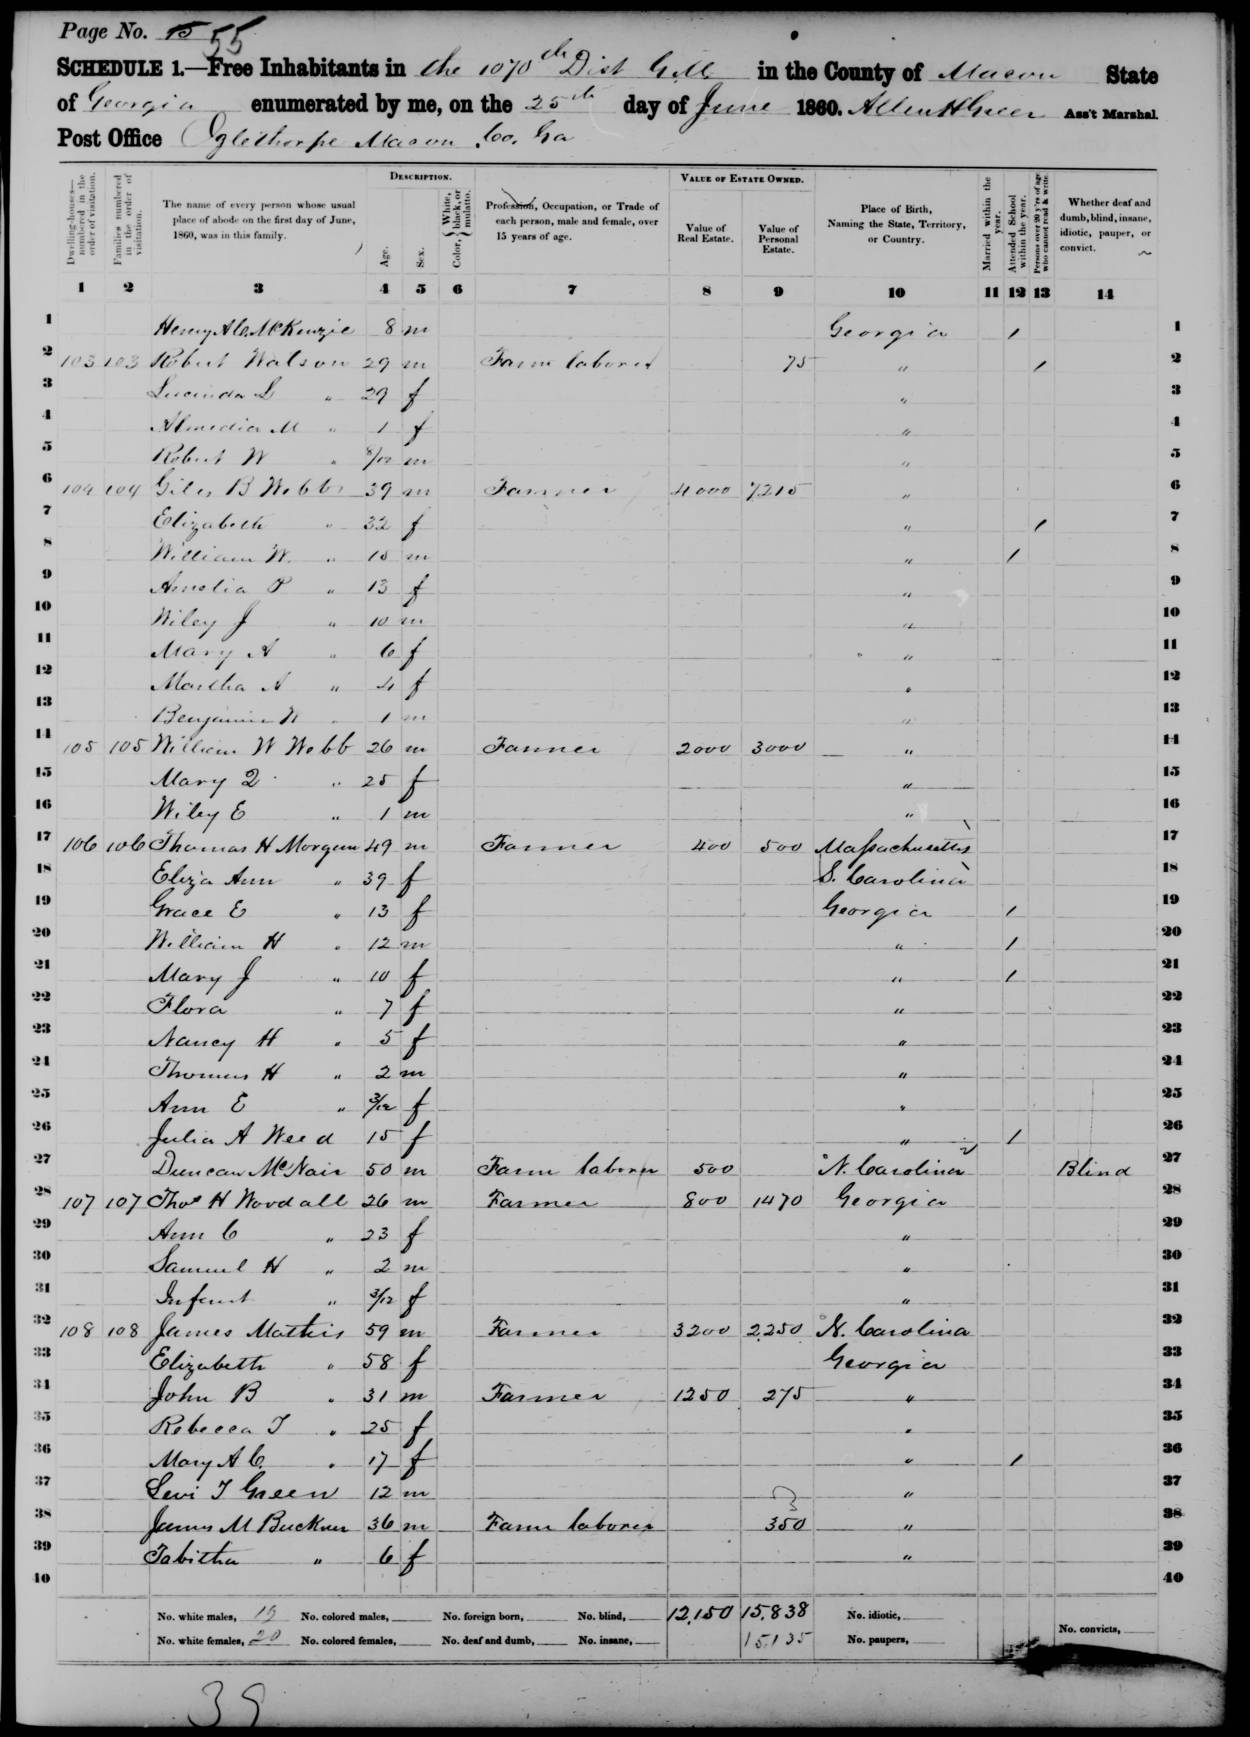 Page No. 15 55
SCHEDULE 1.—Free Inhabitants in the 1070th Dist G.M. in the County of Macon State
of Georgia enumerated by me, on the 25th day of June 1860. Allen H Greer Ass't Marshal.
Post Office Oglethorpe Macon Co. Ga
DESCRIPTION. VALUE OF ESTATE OWNED.
Dwelling-houses—numbered in the order of visitation. Families numbered in the order of visitation. The name of every person whose usual place of abode on the first day of June, 1860, was in this family. Age. Sex. Color, { White, black, or mulatto. Profession, Occupation, or Trade of each person, male and female, over 15 years of age. Value of Real Estate. Value of Personal Estate. Place of Birth, Naming the State, Territory, or Country. Married within the year. Attended School within the year. Persons over 20 y'rs of age who cannot read & write. Whether deaf and dumb, blind, insane, idiotic, pauper, or convict.
1 2 3 4 5 6 7 8 9 10 11 12 13 14
1 Henry McKenzie 8 m Georgia / 1
2 103 103 Robert Watson 29 m Farm laborer 75 " / 2
3 Lucinda L " 29 f " 3
4 Almedia M " 1 f " 4
5 Robert W " 8/12 m " 5
6 104 104 Giles B Webb 39 m Farmer 4000 7215 " 6
7 Elizabeth " 32 f " / 7
8 William W. " 15 m " / 8
9 Amelia P " 13 f " 9
10 Wiley J " 10 m " 10
11 Mary A " 6 f " 11
12 Martha A " 4 f " 12
13 Benjamin " 1 m " 13
14 105 105 William W Webb 26 m Farmer 2000 3000 " 14
15 Mary Q " 25 f " 15
16 Wiley E " 1 m " 16
17 106 106 Thomas H Morgan 49 m Farmer 400 500 Massachusetts 17
18 Eliza Ann " 39 f S. Carolina 18
19 Grace E " 13 f Georgia / 19
20 William H " 12 m " / 20
21 Mary J " 10 f " / 21
22 Flora " 7 f " 22
23 Nancy H " 5 f " 23
24 Thomas H " 2 m " 24
25 Ann E " 3/12 f " 25
26 Julia A Weed 15 f " / 26
27 Duncan McNair 50 m Farm laborer 500 N. Carolina Blind 27
28 107 107 Thos H Woodall 26 m Farmer 800 1470 Georgia 28
29 Ann C " 23 f " 29
30 Samuel H " 2 m " 30
31 Infant " 3/12 f " 31
32 108 108 James Mathis 59 m Farmer 3200 2250 N. Carolina 32
33 Elizabeth " 58 f Georgia 33
34 John B " 31 m Farmer 1250 275 " 34
35 Rebecca T " 25 f " 35
36 Mary A C. " 17 f " / 36
37 Levi T Green 12 m " 37
38 James M Buckner 36 m Farm laborer 350 " 38
39 Tabitha " 6 f " 39
40 40
No. white males, 19 No. colored males, No. foreign born, No. blind, 12,150 15,838 No. idiotic,
No. white females, 20 No. colored females, No. deaf and dumb, No. insane, 15,135 No. paupers, No. convicts,
39